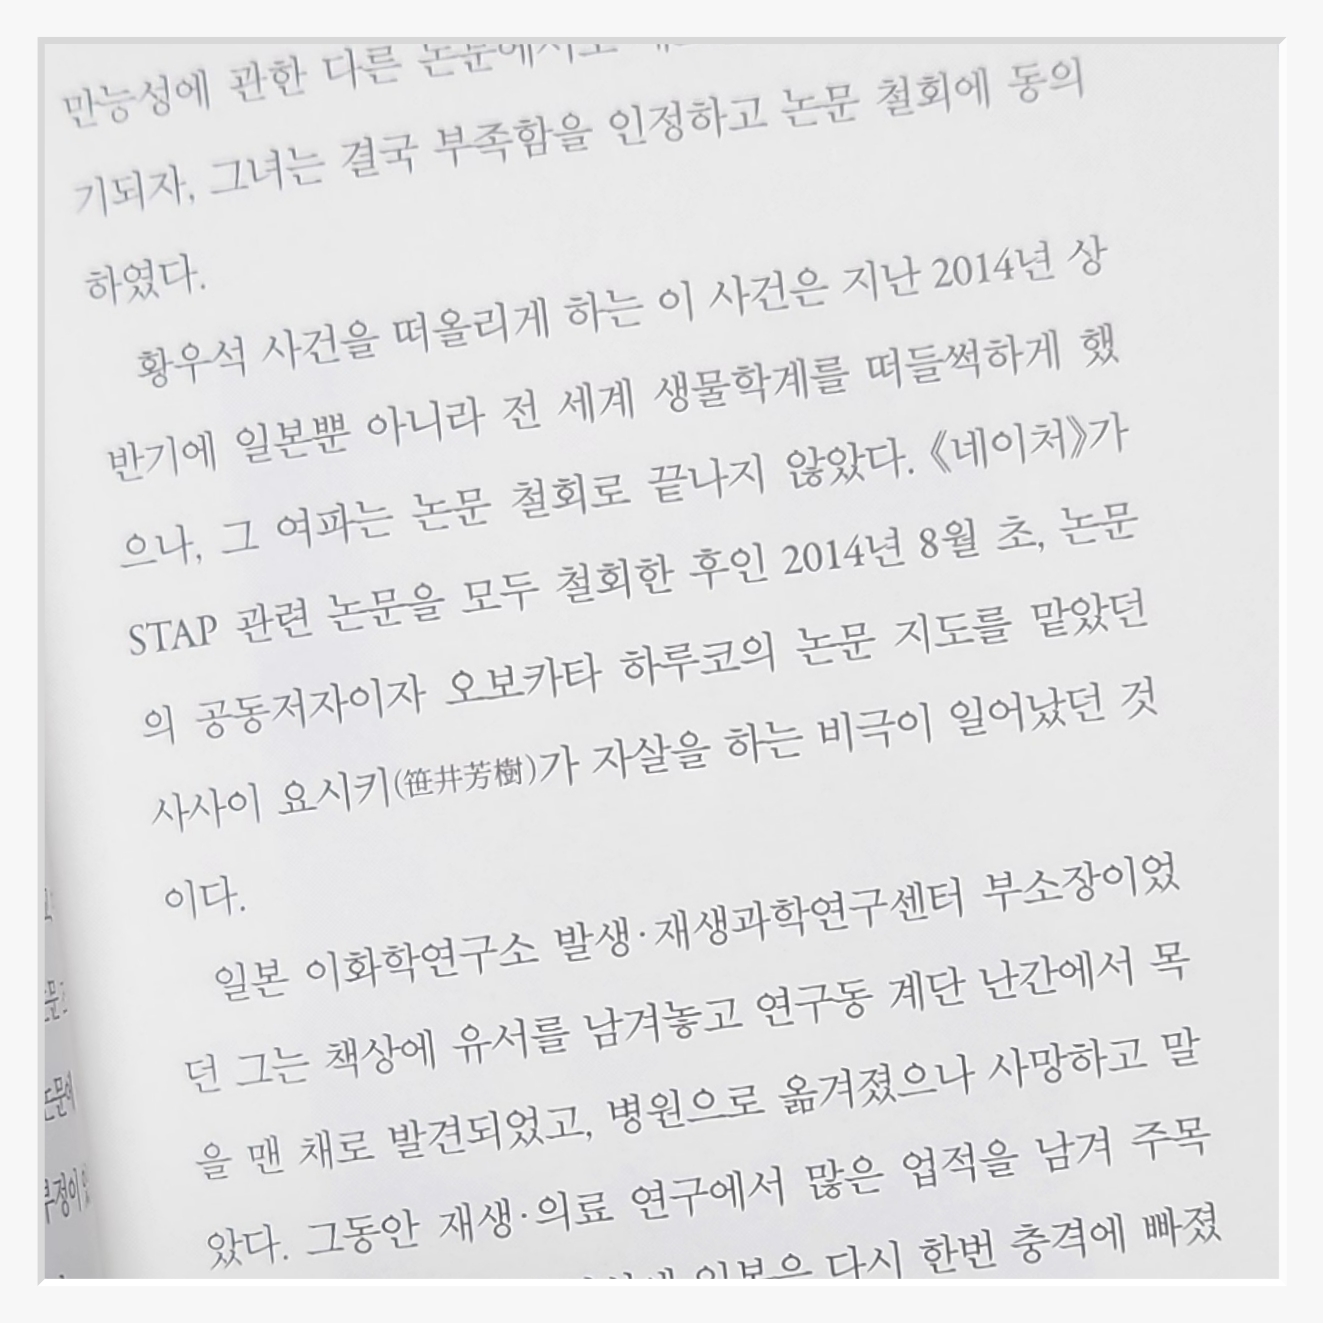 만능성에 관한 다른 논문에서도
기되자, 그녀는 결국 부족함을 인정하고 논문 철회에 동의
하였다.
황우석 사건을 떠올리게 하는 이 사건은 지난 2014년 상
반기에 일본뿐 아니라 전 세계 생물학계를 떠들썩하게 했
으나, 그 여파는 논문 철회로 끝나지 않았다. 《네이처》가
STAP 관련 논문을 모두 철회한 후인 2014년 8월 초, 논문
의 공동저자이자 오보카타 하루코의 논문 지도를 맡았던
사사이 요시키(笹井芳樹)가 자살을 하는 비극이 일어났던 것
이다.
일본 이화학연구소 발생·재생과학연구센터 부소장이었
던 그는 책상에 유서를 남겨놓고 연구동 계단 난간에서 목
을 맨 채로 발견되었고, 병원으로 옮겨졌으나 사망하고 말
았다. 그동안 재생·의료 연구에서 많은 업적을 남겨 주목
일본은 다시 한번 충격에 빠졌